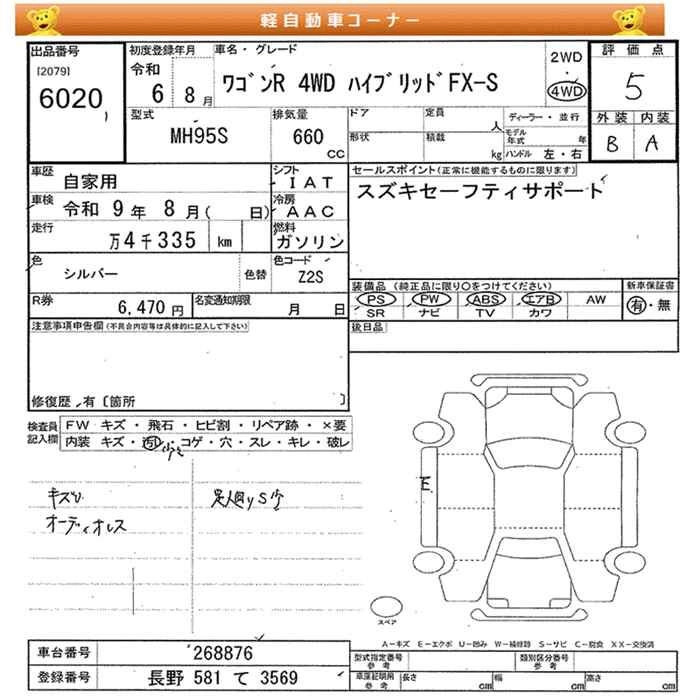 軽自動車コーナー
出品番号
[2079]
6020
初度登録年月
令和
6 8月
車名・グレード
ワゴンR 4WD ハイブリッドFX-S
2WD
・
4WD
評価点
5
外装 内装
B A
型式
MH95S
排気量
660
CC
ドア
形状
定員
人
積載
kg
ディーラー・並行
モデル年式 年
ハンドル 左・右
車歴
自家用
シフト
IAT
車検
令和 9年 8月( 日)
冷房
AAC
走行
万4千335 km
燃料
ガソリン
セールスポイント(正常に機能するものに限ります)
スズキセーフティサポート
色
シルバー
色替
色コード
Z2S
R券
6,470円
名変通知期限
月 日
装備品(純正品に限り〇をつけてください)
PS PW ABS エアB AW
SR ナビ TV カワ
新車保証書
有・無
後日品
注意事項申告欄(不具合内容等は具体的に記入して下さい)
修復歴．有〔箇所 〕
検査員記入欄
FW キズ・飛石・ヒビ割・リペア跡・×要
内装 キズ・汚レ・コゲ・穴・スレ・キレ・破レ
オーディオレス
E
スペア
A－キズ E－エクボ U－凹み W－補修跡 S－サビ C－腐食 XX－交換済
車台番号
268876
登録番号
長野 581 て 3569
型式指定番号
参考
類別区分番号
参考
車庫証明用
参考
長さ cm
幅 cm
高さ cm